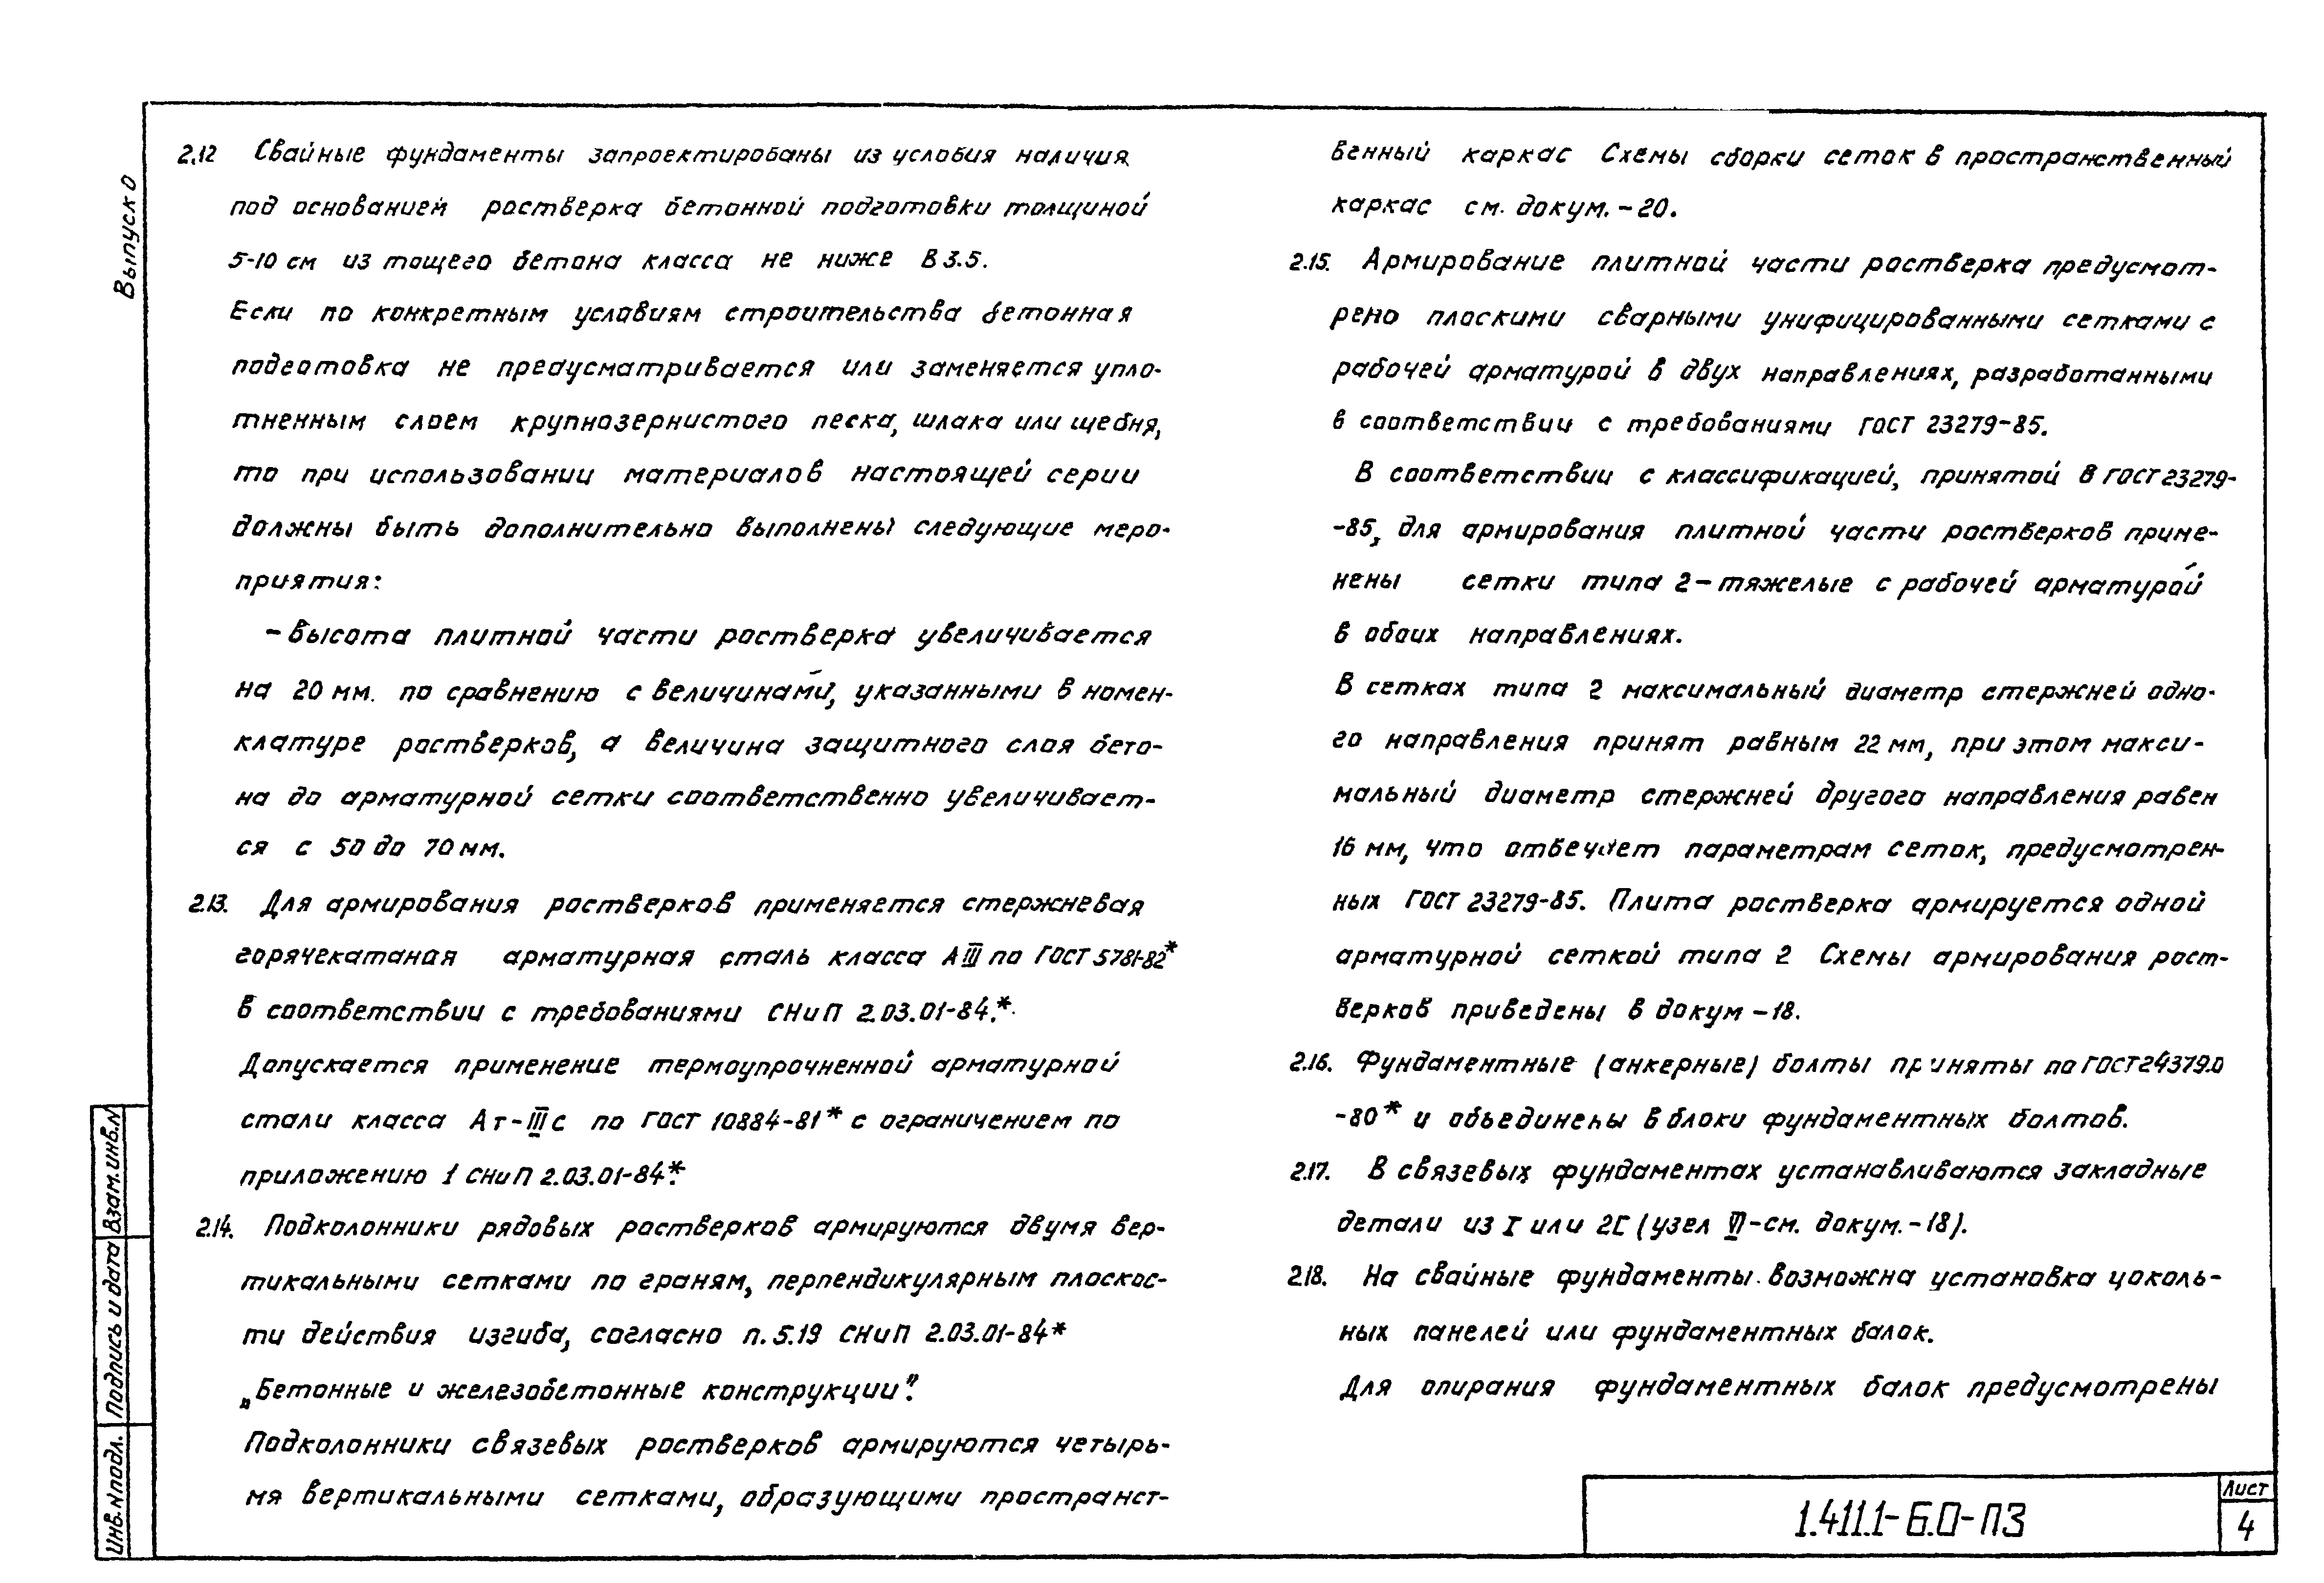 Выпуск 0
2.12 Свайные фундаменты запроектированы из условия наличия
под основанием ростверка бетонной подготовки толщиной
5-10 см из тощего бетона класса не ниже В 3.5.
Если по конкретным условиям строительства бетонная
подготовка не предусматривается или заменяется упло-
тненным слоем крупнозернистого песка, шлака или щебня,
то при использовании материалов настоящей серии
должны быть дополнительно выполнены следующие меро-
приятия:
- Высота плитной части ростверка увеличивается
на 20 мм. по сравнению с величинами, указанными в номен-
клатуре ростверков, а величина защитного слоя бето-
на до арматурной сетки соответственно увеличивает-
ся с 50 до 70 мм.
2.13. Для армирования ростверков применяется стержневая
горячекатаная арматурная сталь класса А III по ГОСТ 5781-82*
в соответствии с требованиями СНиП 2.03.01-84.*
Допускается применение термоупрочненной арматурной
стали класса Ат-IIIс по ГОСТ 10884-81* с ограничением по
приложению 1 СНиП 2.03.01-84.*
2.14. Подколонники рядовых ростверков армируются двумя вер-
тикальными сетками по граням, перпендикулярным плоскос-
ти действия изгиба, согласно п. 5.19 СНиП 2.03.01-84*
„Бетонные и железобетонные конструкции".
Подколонники связевых ростверков армируются четырь-
мя вертикальными сетками, образующими пространст-
венный каркас Схемы сборки сеток в пространственный
каркас см. докум. -20.
2.15. Армирование плитной части ростверка предусмот-
рено плоскими сварными унифицированными сетками с
рабочей арматурой в двух направлениях, разработанными
в соответствии с требованиями ГОСТ 23279-85.
В соответствии с классификацией, принятой в ГОСТ 23279-
-85, для армирования плитной части ростверков приме-
нены сетки типа 2 - тяжелые с рабочей арматурой
в обоих направлениях.
В сетках типа 2 максимальный диаметр стержней одно-
го направления принят равным 22 мм, при этом макси-
мальный диаметр стержней другого направления равен
16 мм, что отвечает параметрам сеток, предусмотрен-
ных ГОСТ 23279-85. Плита ростверка армируется одной
арматурной сеткой типа 2 Схемы армирования рост-
верков приведены в докум -18.
2.16. Фундаментные (анкерные) болты приняты по ГОСТ 24379.0
-80* и объединены в блоки фундаментных болтов.
2.17. В связевых фундаментах устанавливаются закладные
детали из I или 2[ (узел VI - см. докум. -18).
2.18. На свайные фундаменты возможна установка цоколь-
ных панелей или фундаментных балок.
Для опирания фундаментных балок предусмотрены
Инв.N подл. Подпись и дата Взам.инв.N
1.411.1-6.0-ПЗ
Лист
4